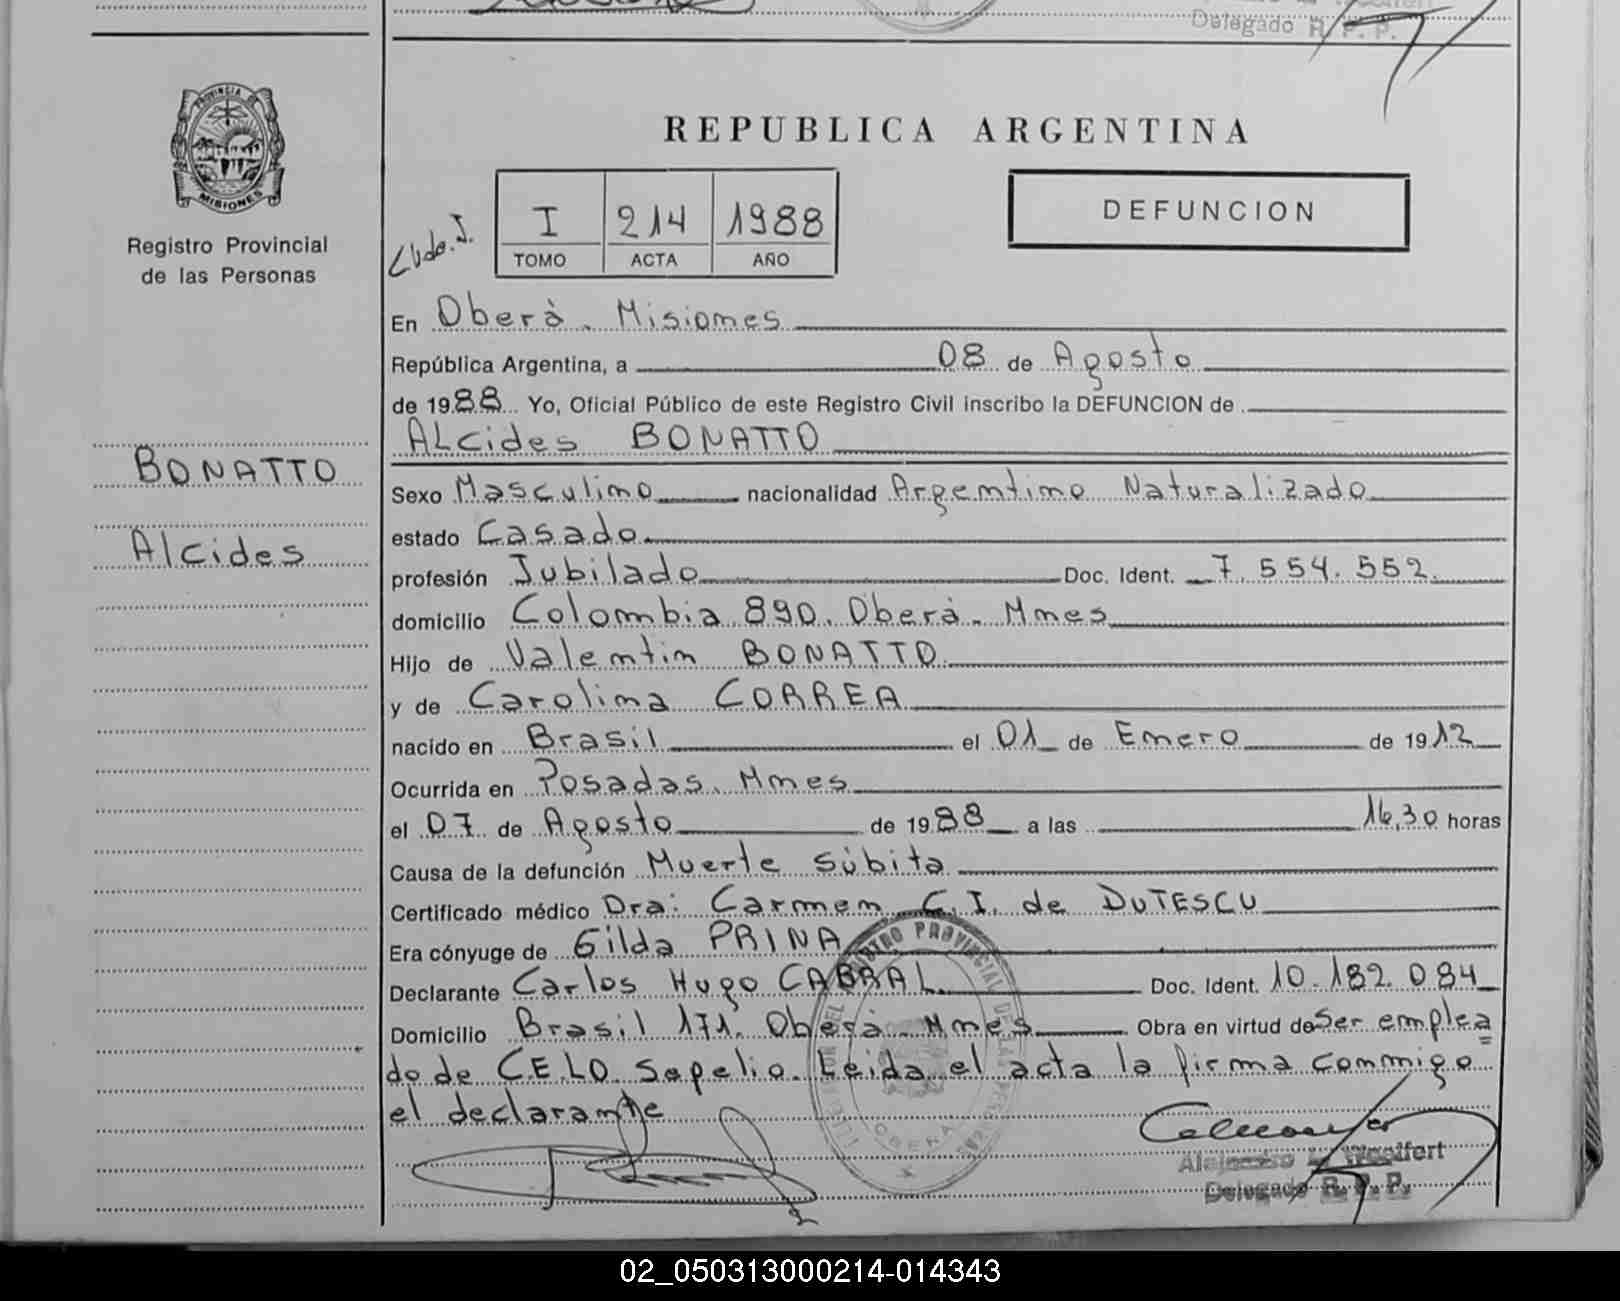 Delegado R. P. P.
PROVINCIA DE
MISIONES
Registro Provincial
de las Personas
BONATTO
Alcides
REPUBLICA ARGENTINA
I 214 1988
TOMO ACTA AÑO
DEFUNCION
En Oberà. Misiones
República Argentina, a 08 de Agosto
de 1988 Yo, Oficial Público de este Registro Civil inscribo la DEFUNCION de
ALcides BONATTO
Sexo Masculino nacionalidad Argentino Naturalizado
estado Casado
profesión Jubilado Doc. Ident. 7.554.552.
domicilio Colombia 890. Oberà. Mnes
Hijo de Valentin BONATTO
y de Carolina CORREA
nacido en Brasil el 01 de Enero de 1912
Ocurrida en Posadas. Mnes
el 07 de Agosto de 1988 a las 16,30 horas
Causa de la defunción Muerte sùbita
Certificado médico Dra: Carmen C.I. de DUTESCU
Era cónyuge de Gilda PRINA
Declarante Carlos Hugo CABRAL. Doc. Ident. 10.182.084
Domicilio Brasil 171. Oberà. Mnes Obra en virtud de Ser emplea
do de CELO Sepelio. Leida el acta la firma conmigo
el declarante
REGISTRO PROVINCIAL DE LAS PERSONAS
OBERA
Delegado R. P. P.
02_050313000214-014343